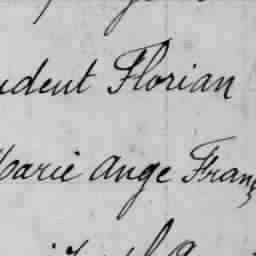 udent Florian
Marie Ange Franç